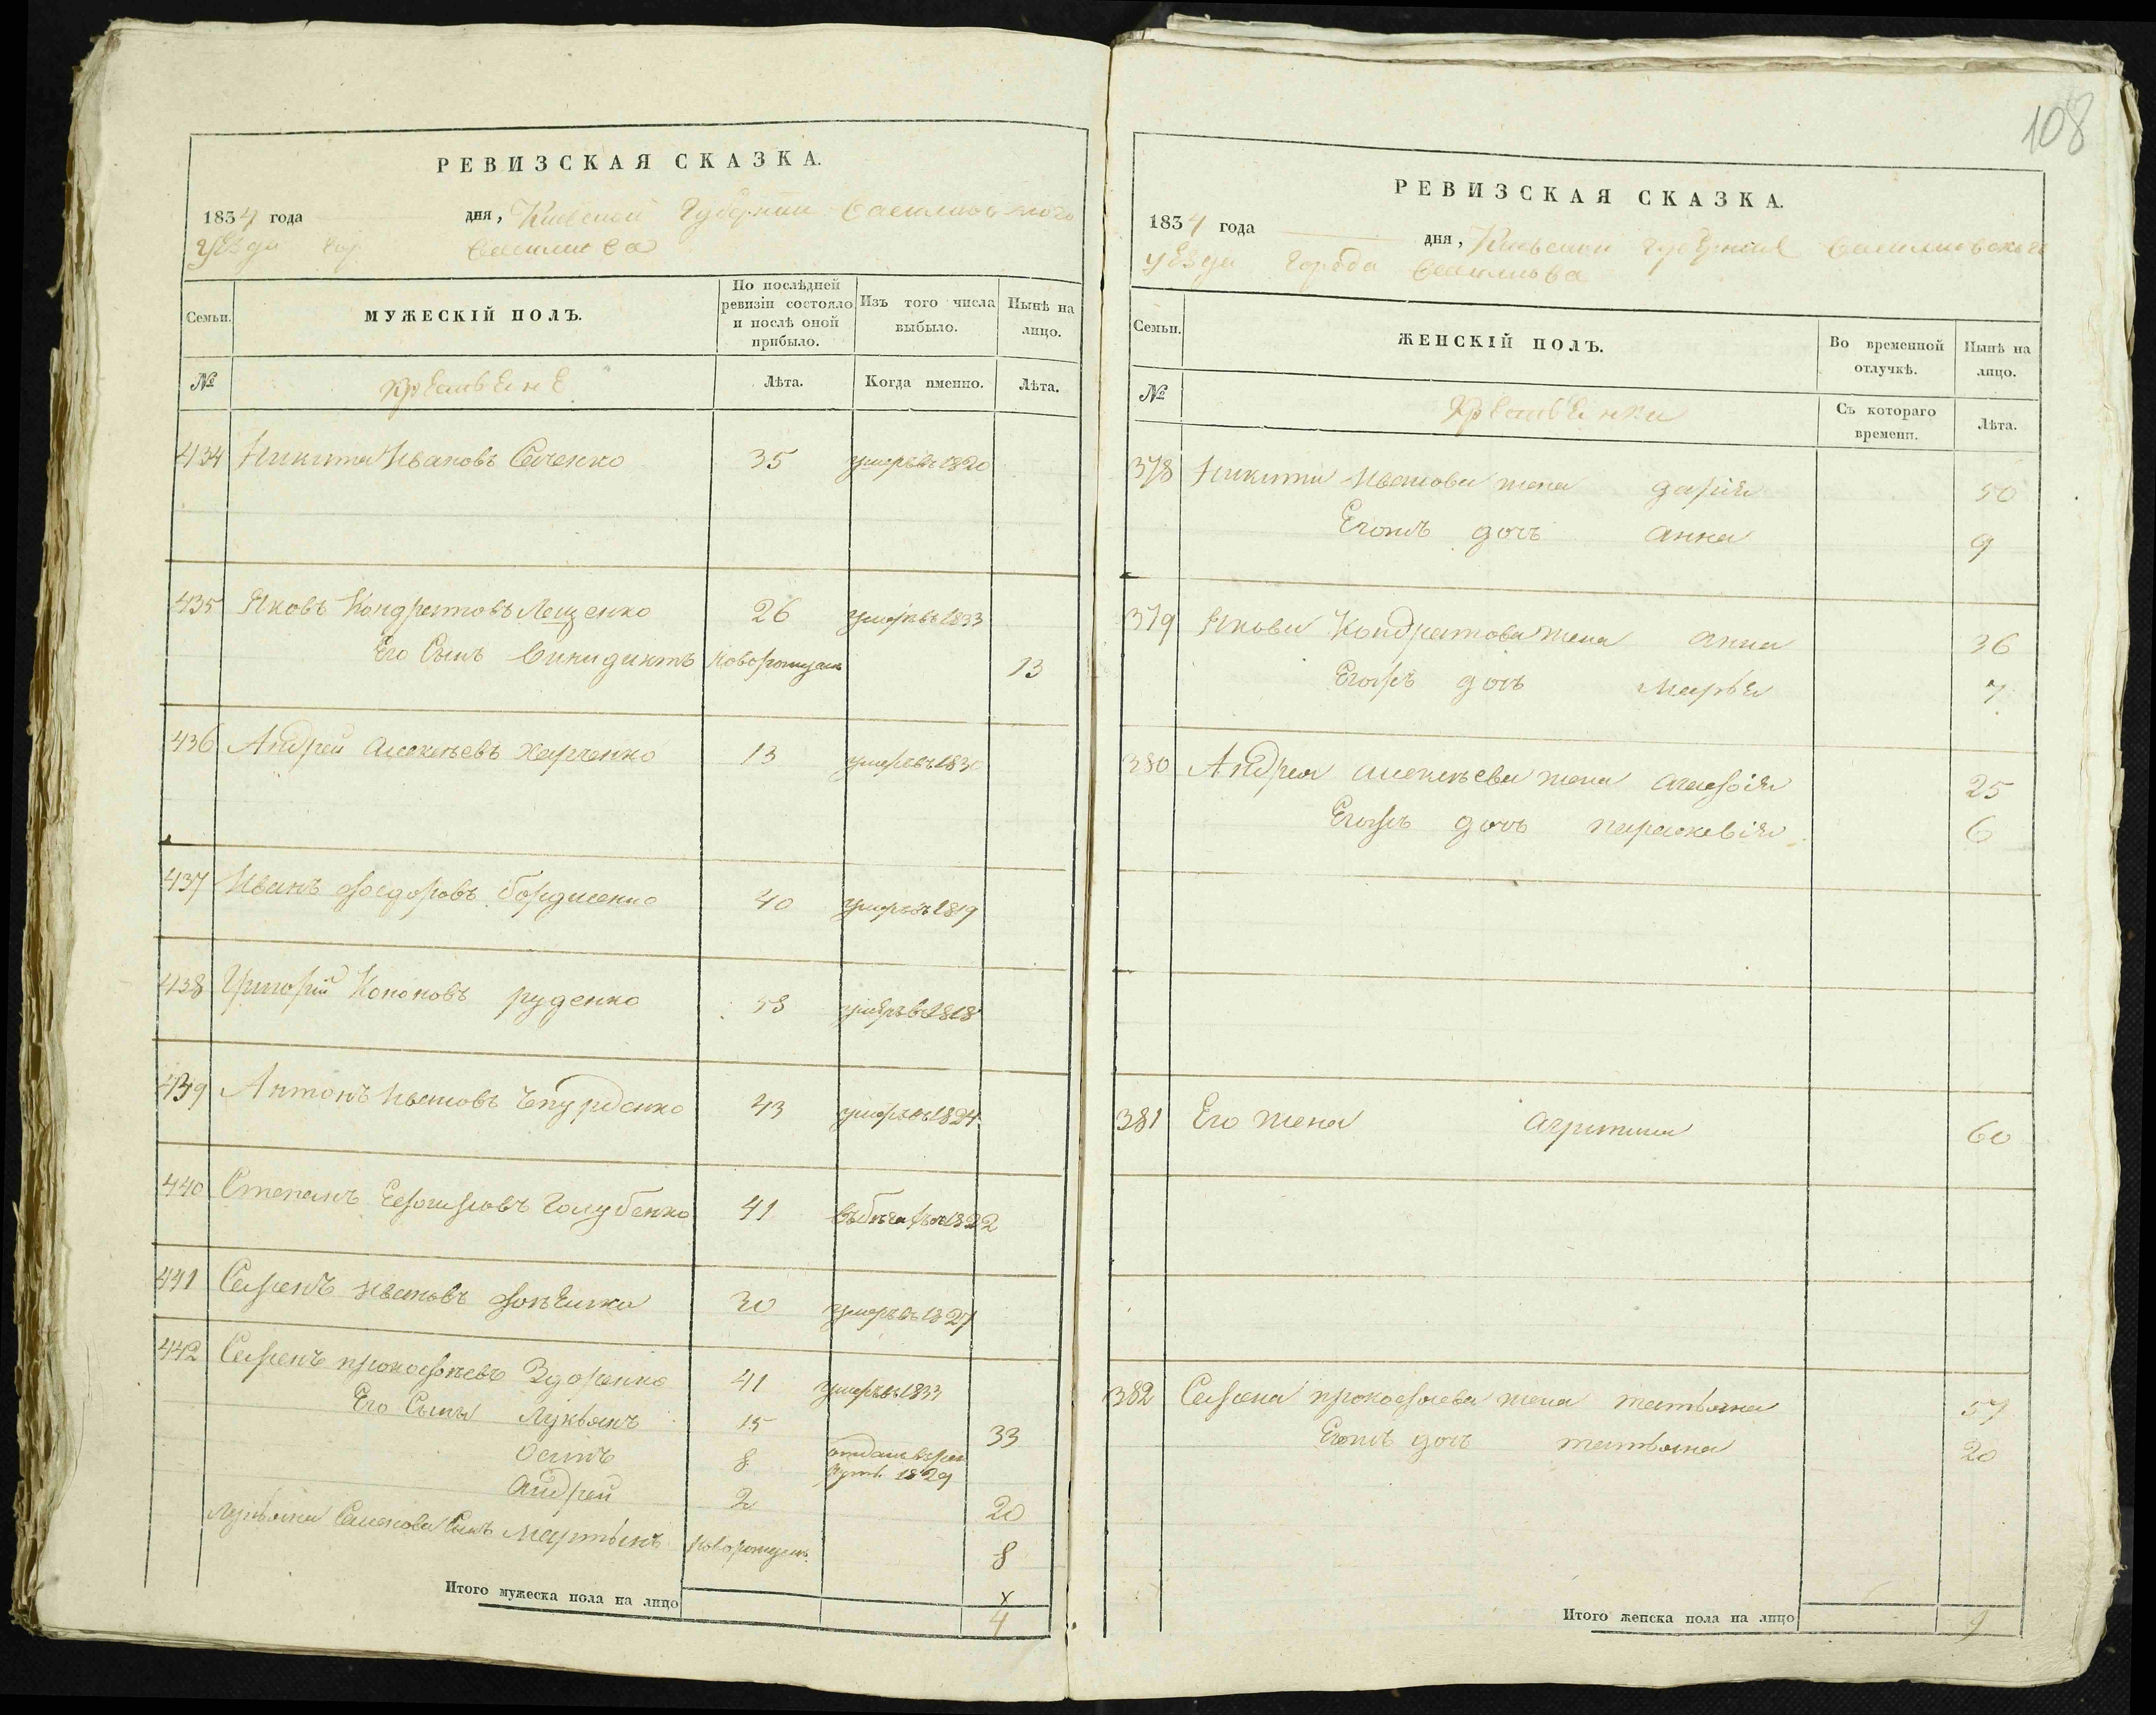 РЕВИЗСКАЯ СКАЗКА.
1834 года дня, Киевской Губернии Василковского
уезда гор Василкова
Семьи. МУЖЕСКІЙ ПОЛЪ. По послѣдней ревизіи состояло и послѣ оной прибыло. Изъ того числа выбыло. Нынѣ на лицо.
№ Лѣта. Когда именно. Лѣта.
434 Никита Ивановъ 35 умеръ въ 1820
435 Яковъ Кондратовъ Лещенко 26 умеръ въ 1833
Его Сынъ новорожденъ 13
436 Андрей Алексѣевъ Харченко 13 умеръ въ 1830
437 Иванъ Федоровъ 40 умеръ въ 1819
438 Григорій Кононовъ руденко 53 умеръ въ 1818
439 Антонъ Ивановъ 43 умеръ въ 1824
440 Степанъ Голубенко 41 1822
441 Семенъ Ивановъ 30 умеръ въ 1827
442 Семенъ прокофьевъ Здоренко 41 умеръ въ 1833
Его Сыны Лукьянъ 15 33
Осипъ 8 1829
Андрей 2 20
Лукьяна Семенова Сынъ Мартынъ новорожденъ 8
Итого мужеска пола на лицо 4
108
РЕВИЗСКАЯ СКАЗКА.
1834 года дня, Киевской Губерніи Василковскаго
уезда города Василкова
Семьи. ЖЕНСКІЙ ПОЛЪ. Во временной отлучкѣ. Нынѣ на лицо.
№ Съ котораго времени. Лѣта.
378 Никиты Иванова жена дарія 50
дочь анна 9
379 Якова Кондратова жена анна 36
дочь марья 7
380 Андрея алексѣева жена агафія 25
дочь параскевія 6
381 Его жена 60
382 Семена прокофьева жена татьяна 57
дочь татьяна 20
Итого женска пола на лицо 9